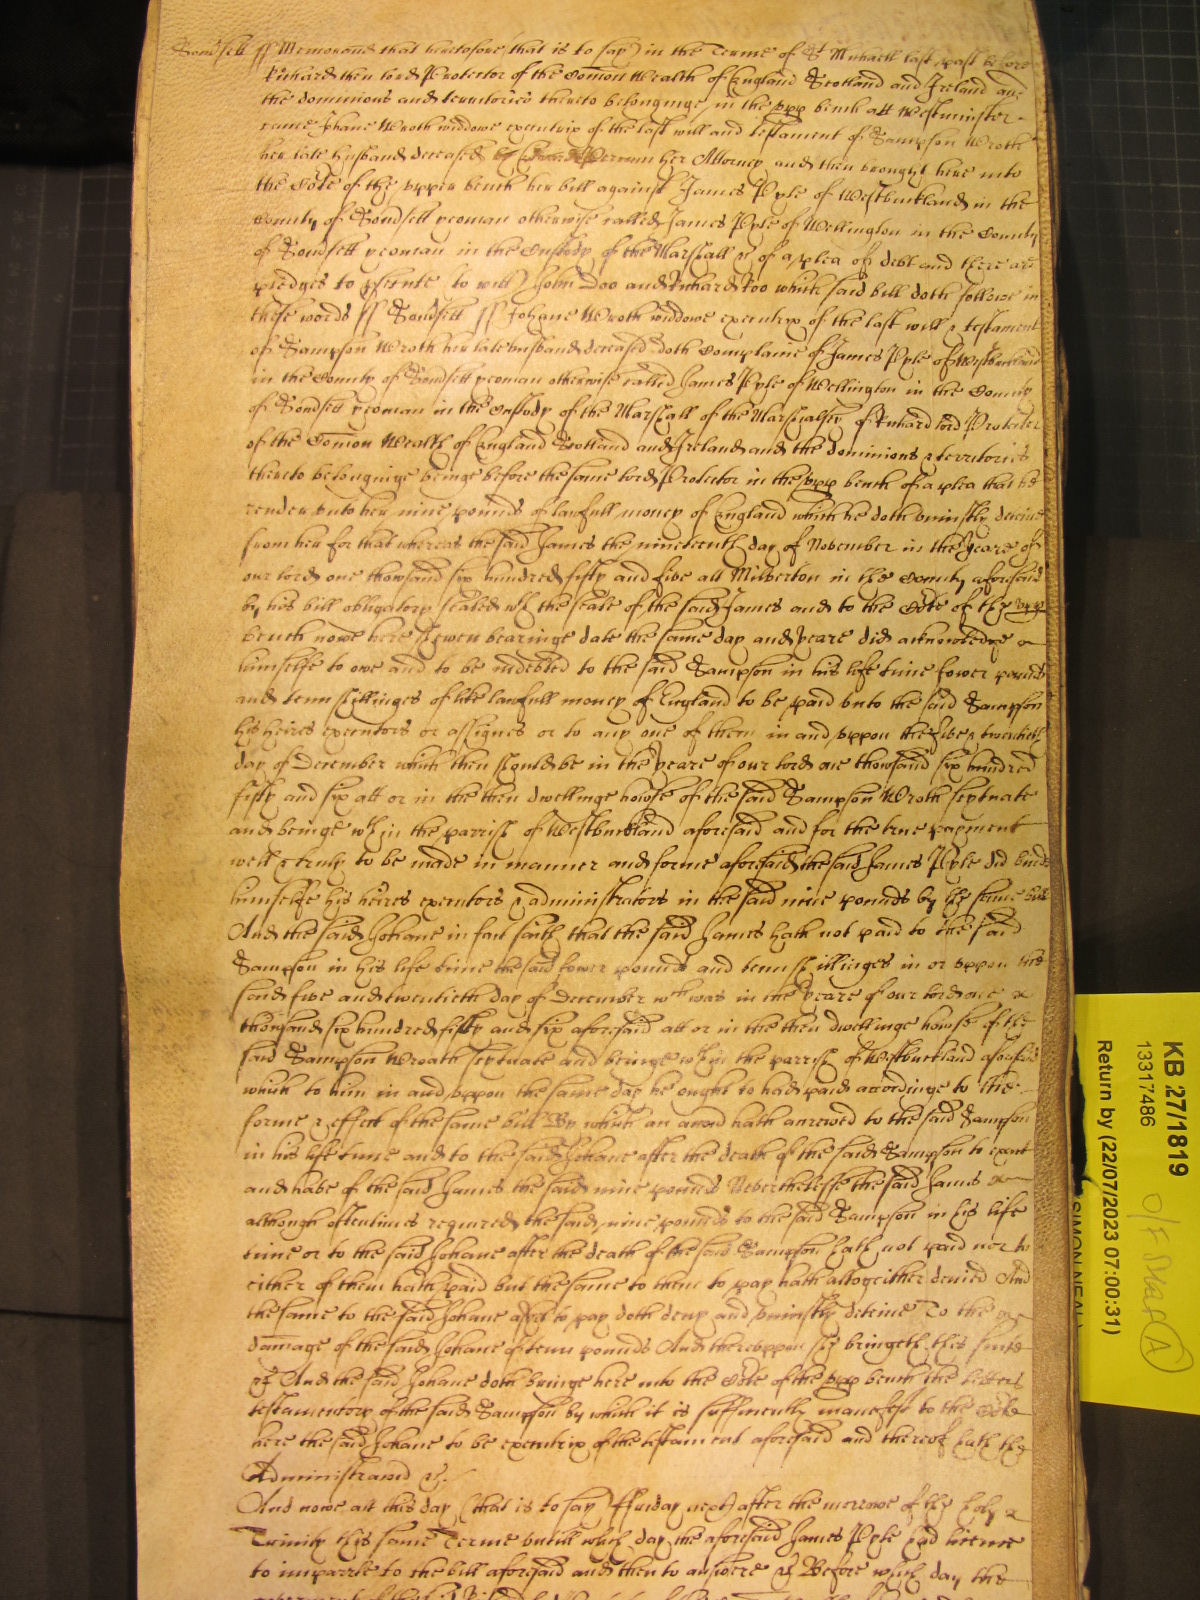 Somersett ss Memorand that heretofore (that is to say) in the Terme of St Michaell last past before
Richard then lord Protector of the Com̄on Wealth of England Scotland and Ireland and
the dominions and territories thereto belonginge in the vpp bench att Westminster
came Johane Wroth widdowe executrix of the last will and testament of Sampson Wroth
her late husband deceased by her Attorney and then brought here into
the Cote of the vpper bench her bill against James Pyle of Westbuckland in the
County of Somsett yeoman otherwise called James Pyle of Wellington in the County
of Somsett yeoman in the Custody of the Marshall &c of a plea of debt and there are
pledges to psecute to witt John Doo and Richard Roo which said bill doth followe in
these words ss Somsett ss Johane Wroth widdowe executrix of the last will & testament
of Sampson Wroth her late husband deceased doth Complaine of James Pyle of Westbuckland
in the County of Somsett yeoman otherwise called James Pyle of Wellington in the County
of Somsett yeoman in the Custody of the Marshall of the Marshalsey of Richard lord Protector
of the Com̄on Wealth of England Scotland and Ireland and the dominions & territories
thereto belonginge beinge before the same lord Protector in the vpp bench of a plea that he
render vnto her nine pounds of lawfull money of England which he doth vniustly deteine
from her for that whereas the said James the nineteenth day of November in the yeare of
our lord one thowsand six hundred fifty and five att Milverton in the County aforesaid
by his bill obligatory sealed wth the seale of the said James and to the Cote of the vpp
bench nowe here shewen bearinge date the same day and yeare did acknowledge
himselfe to owe and to be indebted to the said Sampson in his life time fower pounds
and tenn shillinges of like lawfull money of England to be paid vnto the said Sampson
his heires executors or assignes or to any one of them in and vppon the five & twentieth
day of December which then should be in the yeare of our lord one thowsand six hundred
fifty and six att or in the then dwellinge howse of the said Sampson Wroth scytuate
and beinge wth in the parrish of Westbuckland aforesaid and for the true payment
well & truly to be made in manner and forme aforesaid the said James Pyle did binde
himselfe his heires executors & administrators in the said nine pounds by the same bill
And the said Johane in fact saith that the said James hath not paid to the said
Sampson in his life time the said fower pounds and tenn shillinges in or vppon the
said five and twentieth day of December wch was in the yeare of our lord one
thowsand six hundred fifty and six aforesaid att or in the then dwellinge howse of the
said Sampson Wroath scytuate and beinge wth in the parrish of Westbuckland aforesaid
which to him in and vppon the same day he ought to had paid accordinge to the
forme & effect of the same bill By which an accon hath accrewed to the said Sampson
in his life time and to the said Johane after the death of the said Sampson to exact
and have of the said James the said nine pounds Neverthelesse the said James
although oftentimes required the said nine pounds to the said Sampson in his life
time or to the said Johane after the death of the said Sampson hath not paid nor to
either of them hath paid but the same to them to pay hath altogeither denied And
the same to the said Johane as yet to pay doth deny and vniustly deteine To the
damage of the said Johane of tenn pounds And therevppon she bringeth this suite
&c And the said Johane doth bringe here into the Cote of the vpp bench the letters
testamentory of the said Sampson by which it is sufficiently manefest to the Cote
here the said Johane to be executrix of the testament aforesaid and thereof hath the
Administracōn &c
And nowe att this day (that is to say) ffriday next after the morrowe of the holy
Trinity this same Terme vntill which day the aforesaid James Pyle had licence
to imparle to the bill aforesaid and then to answere &c Before which day the
KB 27/1819
13317486
Return by (22/07/2023 07:00:31)
SIMON NEAL
A